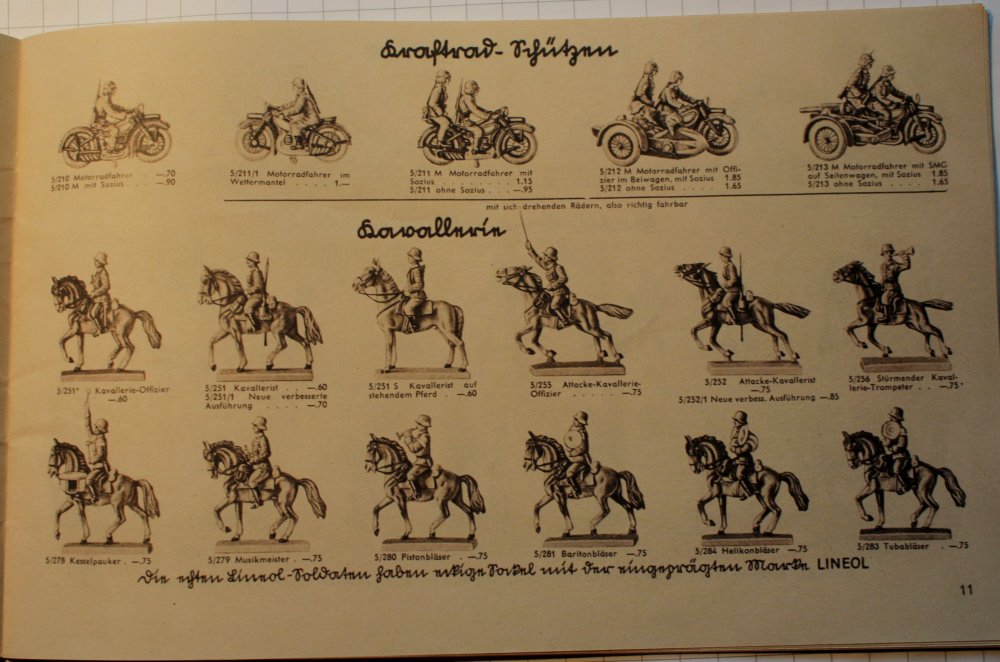 Kraftrad-Schützen
5/210 Motorradfahrer —.70
5/210 M mit Sozius . . . —.90
5/211/1 Motorradfahrer im
Wettermantel . . . . 1.—
5/211 M Motorradfahrer mit
Sozius . . . . . . . . 1.15
5/211 ohne Sozius . . . —.95
5/212 M Motorradfahrer mit Offi-
zier im Beiwagen, mit Sozius 1.85
5/212 ohne Sozius . . . . 1.65
5/213 M Motorradfahrer mit SMG
auf Seitenwagen, mit Sozius 1.85
5/213 ohne Sozius . . . . 1.65
mit sich drehenden Rädern, also richtig fahrbar
Kavallerie
5/251* Kavallerie-Offizier
—.60
5/251 Kavallerist . . —.60
5/251/1 Neue verbesserte
Ausführung . . . . —.70
5/251 S Kavallerist auf
stehendem Pferd . —.60
5/255 Attacke-Kavallerie-
Offizier . . . . . —.75
5/252 Attacke-Kavallerist
—.75
5/252/1 Neue verbess. Ausführung —.85
5/256 Stürmender Kaval-
lerie-Trompeter . . —.75*
5/278 Kesselpauker . —.75
5/279 Musikmeister . —.75
5/280 Pistonbläser . —.75
5/281 Baritonbläser —.75
5/284 Helikonbläser —.75
5/283 Tubabläser . —.75
Die echten Lineol-Soldaten haben eckige Sockel mit der eingeprägten Marke LINEOL
11